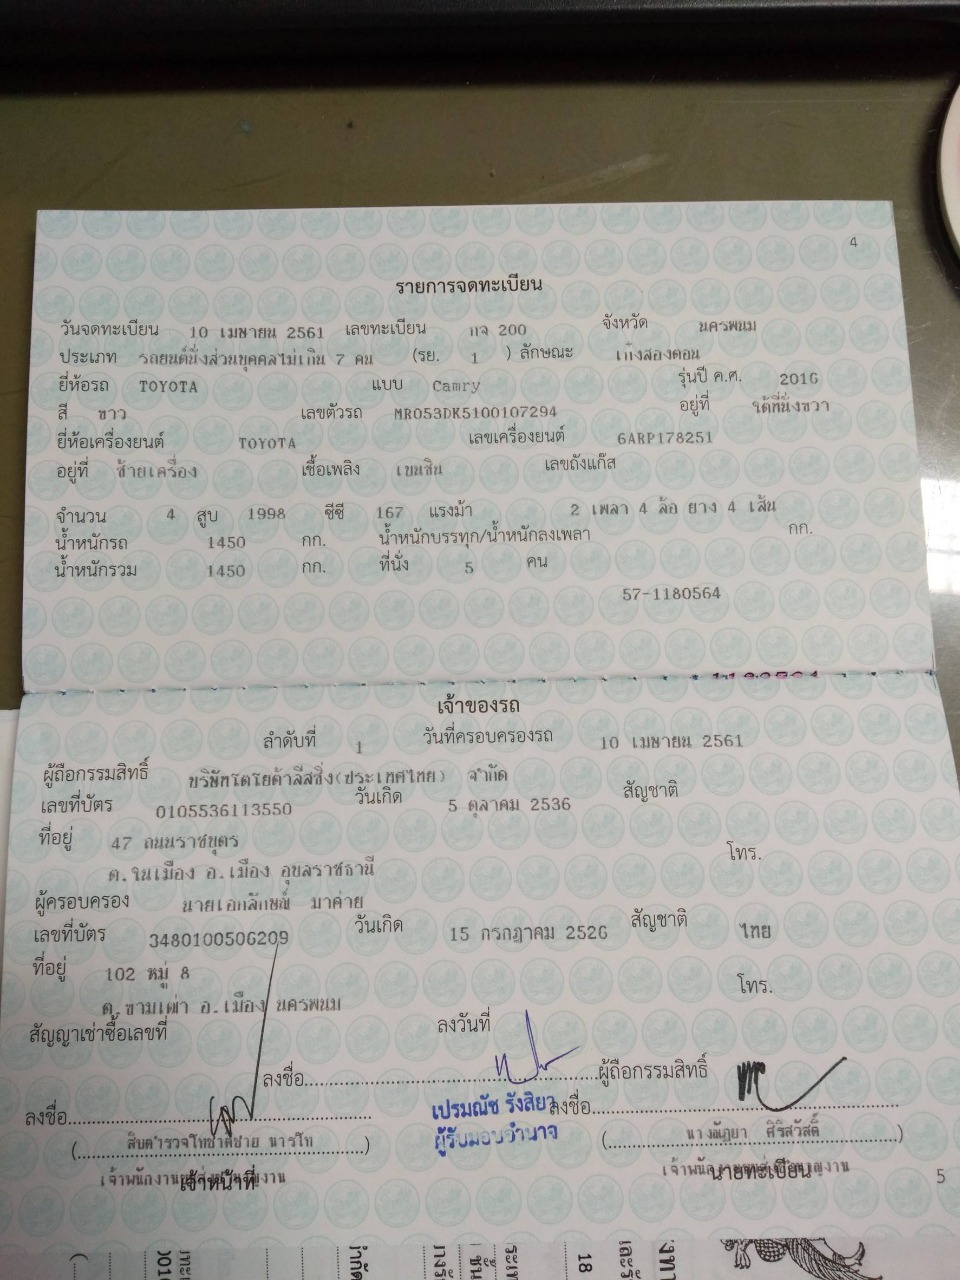 4
รายการจดทะเบียน
วันจดทะเบียน 10 เมษายน 2561 เลขทะเบียน กจ 200 จังหวัด นครพนม
ประเภท รถยนต์นั่งส่วนบุคคลไม่เกิน 7 คน (รย. 1 ) ลักษณะ เก๋งสองตอน
ยี่ห้อรถ TOYOTA แบบ Camry รุ่นปี ค.ศ. 2016
สี ขาว เลขตัวรถ MR053DK5100107294 อยู่ที่ ใต้ที่นั่งขวา
ยี่ห้อเครื่องยนต์ TOYOTA เลขเครื่องยนต์ 6ARP178251
อยู่ที่ ซ้ายเครื่อง เชื้อเพลิง เบนซิน เลขถังแก๊ส
จำนวน 4 สูบ 1998 ซีซี 167 แรงม้า 2 เพลา 4 ล้อ ยาง 4 เส้น
น้ำหนักรถ 1450 กก. น้ำหนักบรรทุก/น้ำหนักลงเพลา กก.
น้ำหนักรวม 1450 กก. ที่นั่ง 5 คน
57-1180564
เจ้าของรถ
ลำดับที่ 1 วันที่ครอบครองรถ 10 เมษายน 2561
ผู้ถือกรรมสิทธิ์ บริษัทโตโยต้าลีสซิ่ง(ประเทศไทย) จำกัด
เลขที่บัตร 0105536113550 วันเกิด 5 ตุลาคม 2536 สัญชาติ
ที่อยู่ 47 ถนนราชบุตร โทร.
ต.ในเมือง อ.เมือง อุบลราชธานี
ผู้ครอบครอง นายเอกลักษณ์ มาค่าย
เลขที่บัตร 3480100506209 วันเกิด 15 กรกฎาคม 2526 สัญชาติ ไทย
ที่อยู่ 102 หมู่ 8 โทร.
ต.ขามเฒ่า อ.เมือง นครพนม
สัญญาเช่าซื้อเลขที่ ลงวันที่
ลงชื่อ ผู้ถือกรรมสิทธิ์
ลงชื่อ เปรมณัช รังสิยา ลงชื่อ
ผู้รับมอบอำนาจ
(สิบตำรวจโทชาติชาย นารโท) (นางณัฎยา ศิริสวัสดิ์)
เจ้าหน้าที่ นายทะเบียน
5
18